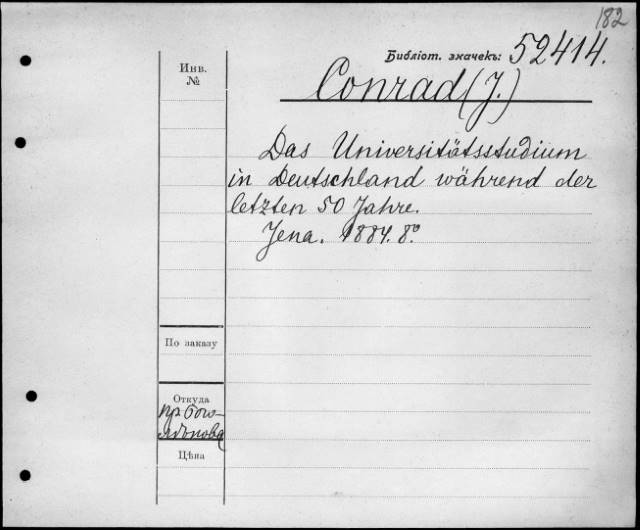 182
Библіот. значекъ: 52414.
Инв.
№
Conrad (J.)
Das Universitätsstudium
in Deutschland während der
letzten 50 Jahre.
Jena. 1884. 8º.
По заказу
Откуда
Цѣна